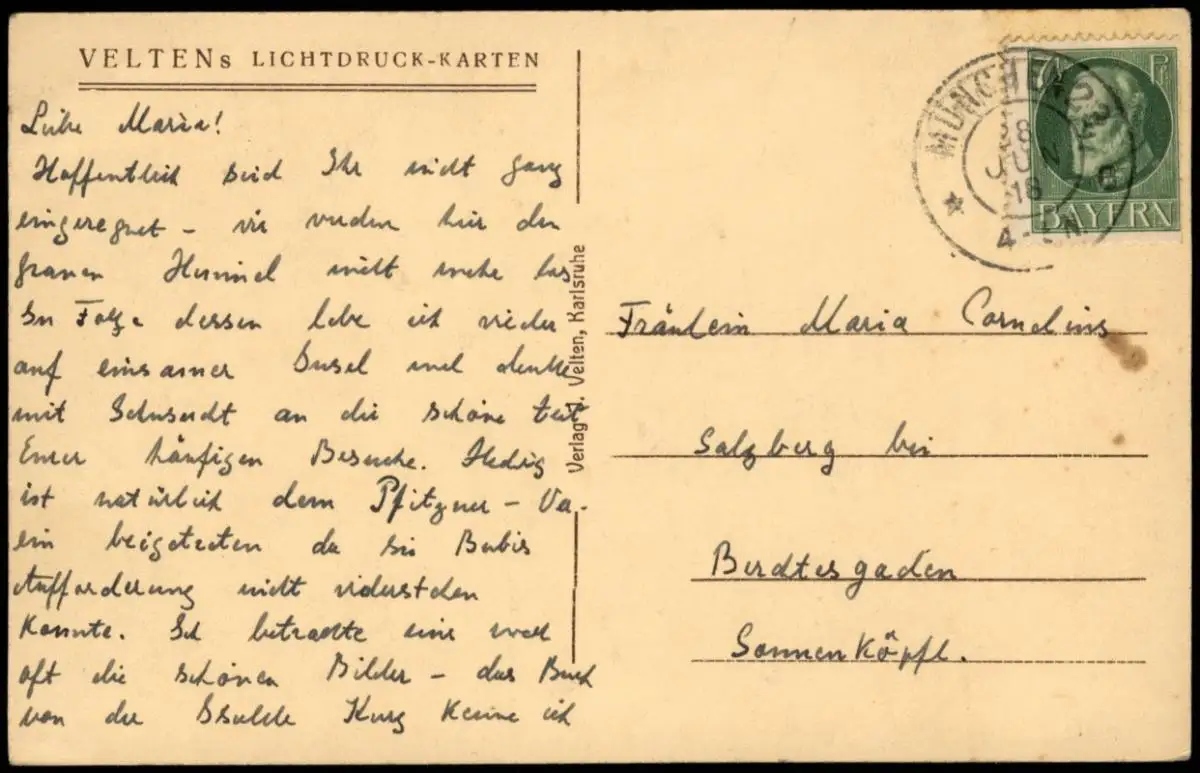 VELTENs LICHTDRUCK-KARTEN
Liebe Maria!
Hoffentlich seid Ihr nicht ganz
eingeregnet – wir werden hier den
grauen Himmel nicht mehr los
In Folge dessen lebe ich wieder
auf einsamer Insel und denke
mit Sehnsucht an die schöne Zeit
Eurer häufigen Besuche. Hedwig
ist natürlich dem Pfitzner – Ve-
ein beigetreten da sie Bubis
Aufforderung nicht widerstehen
konnte. Ich betrachte eine noch
oft die schönen Bilder – das Buch
von der Kurz kenne ich
Verlag J. Velten, Karlsruhe
7½ Pf
BAYERN
MÜNCHEN
JUN
16
4
Fräulein Maria Cornelius
Salzberg bei
Berchtesgaden
Sonnenköpfl.